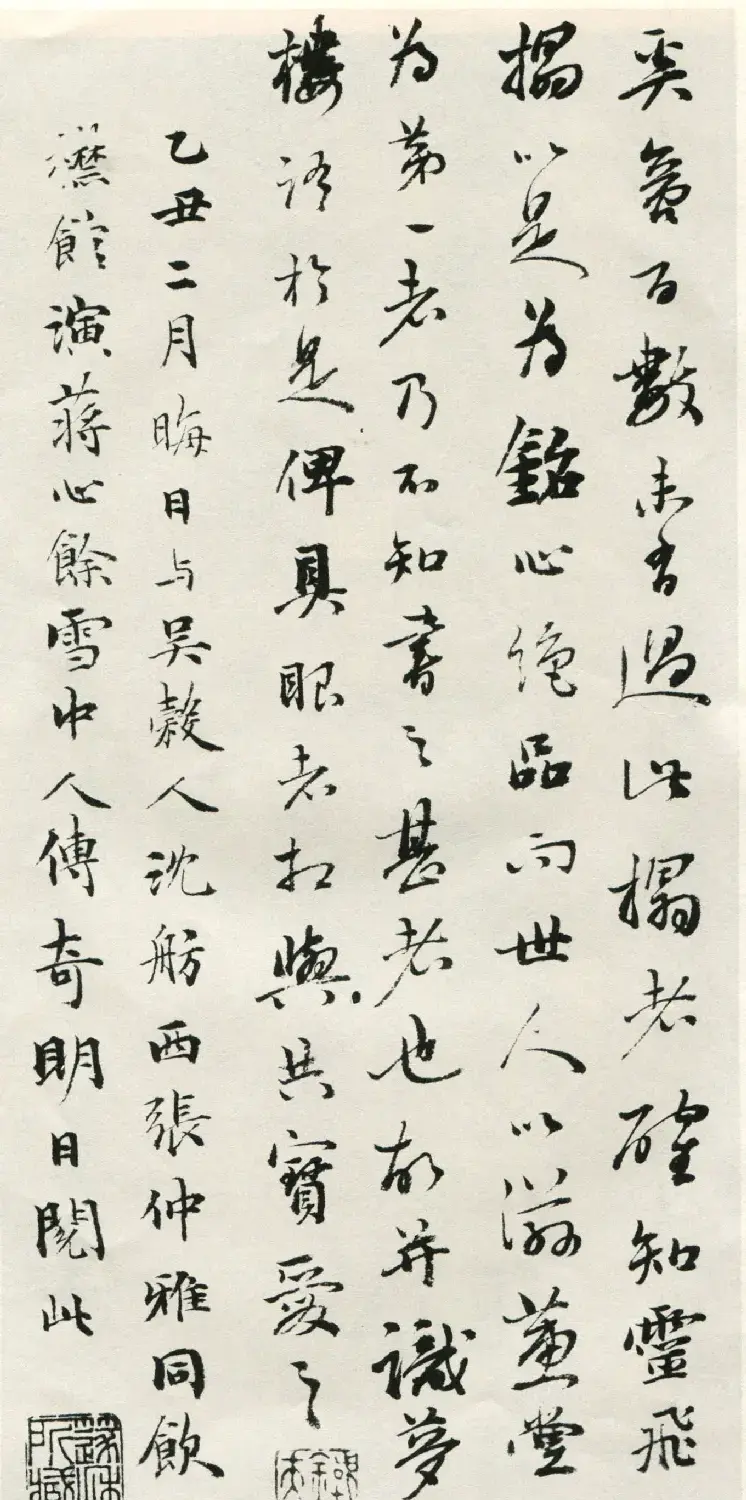 奚啻百數未有過此搨者確知靈飛
搨以是為銘心絕品而世人以滋蕙堂
為第一者乃不知書之甚者也故并識夢
樓語於是俾具眼者相與共寶愛之
乙丑二月晦日与吴穀人沈舫西張仲雅同飲
懋館演蔣心餘雪中人傳奇明日閱此